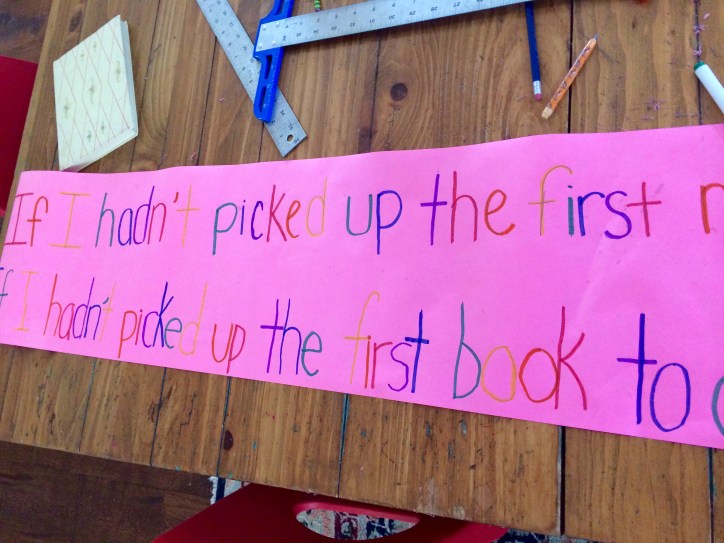 If I hadn't picked up the first
If I hadn't picked up the first book to